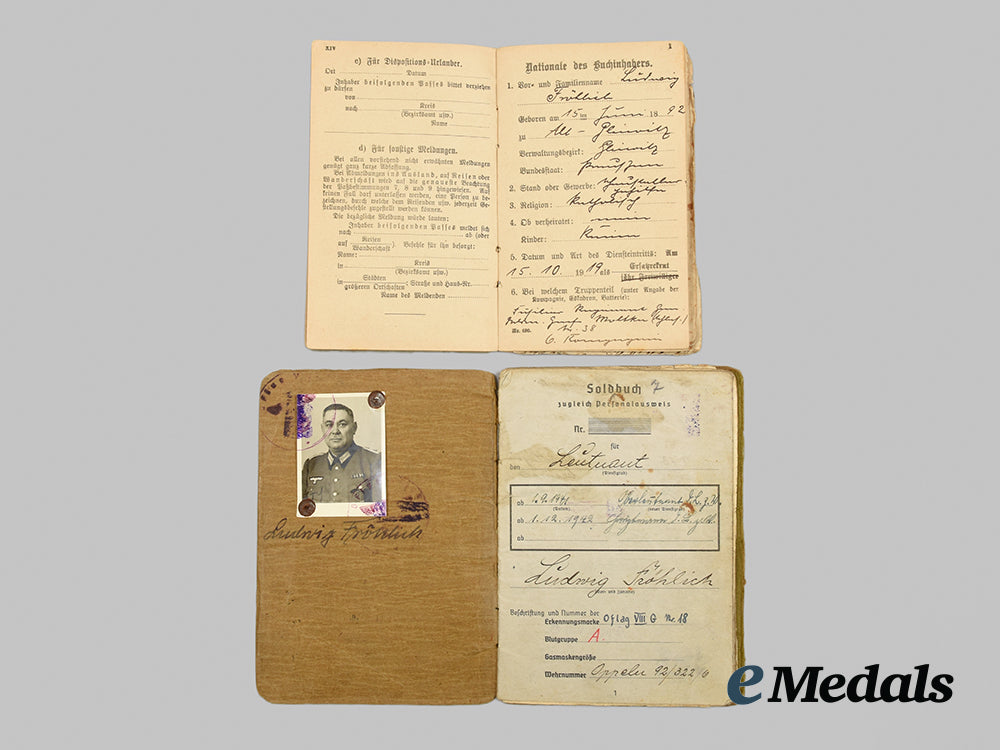 XIV
c) Für Dispositions-Urlauber.
Ort Datum
Inhaber beifolgenden Passes bittet verziehen
zu dürfen
von
nach Kreis
(Bezirksamt usw.)
Name
d) Für sonstige Meldungen.
Bei allen vorstehend nicht erwähnten Meldungen
genügt ganz kurze Abfassung.
Bei Abmeldungen ins Ausland, auf Reisen oder
Wanderschaft wird auf die genaueste Beachtung
der Paßbestimmungen 7, 8 und 9 hingewiesen. Auf
keinen Fall darf unterlassen werden, eine Person zu be-
zeichnen, durch welche dem Reisenden usw. jederzeit Ge-
stellungsbefehle zugestellt werden können.
Die bezügliche Meldung würde lauten:
Inhaber beifolgenden Passes meldet sich
nach ab (oder
auf Reisen
Wanderschaft). Befehle für ihn besorgt:
Name:
in Kreis
(Bezirksamt usw.)
in Städten
größeren Ortschaften (Straße und Haus-Nr.
Name des Meldenden
1
Nationale des Buchinhabers.
1. Vor- und Familienname Ludwig
Fröhlich
Geboren am 15 ten Juni 1892
zu Alt-Gleiwitz
Verwaltungsbezirk: Gleiwitz
Bundesstaat: Preußen
2. Stand oder Gewerbe:
3. Religion: Katholisch
4. Ob verheiratet: nein
Kinder: Keine
5. Datum und Art des Diensteintritts: Am
15. 10. 1919 als Ersatzrekrut
Ehr. Freiwilliger
6. Bei welchem Truppenteil (unter Angabe der
Kompagnie, Eskadron, Batterie):
Füsilier Regiment Gen.
Feldm. Graf Moltke (Schles.)
Nr. 38
6. Kompagnie
Ludwig Fröhlich
Soldbuch 7
zugleich Personalausweis
Nr.
für
den Leutnant
(Dienstgrad)
ab 1.9.1941 Oberleutnant d.L.z.V.
(Datum) (neuer Dienstgrad)
ab 1.12.1942 Hauptmann
ab
Ludwig Fröhlich
(Vor- und Zuname)
Beschriftung und Nummer der
Erkennungsmarke Oflag VIII G Nr. 18
Blutgruppe A.
Gasmaskengröße
Wehrnummer Oppeln 92/322/6
1
eMedals